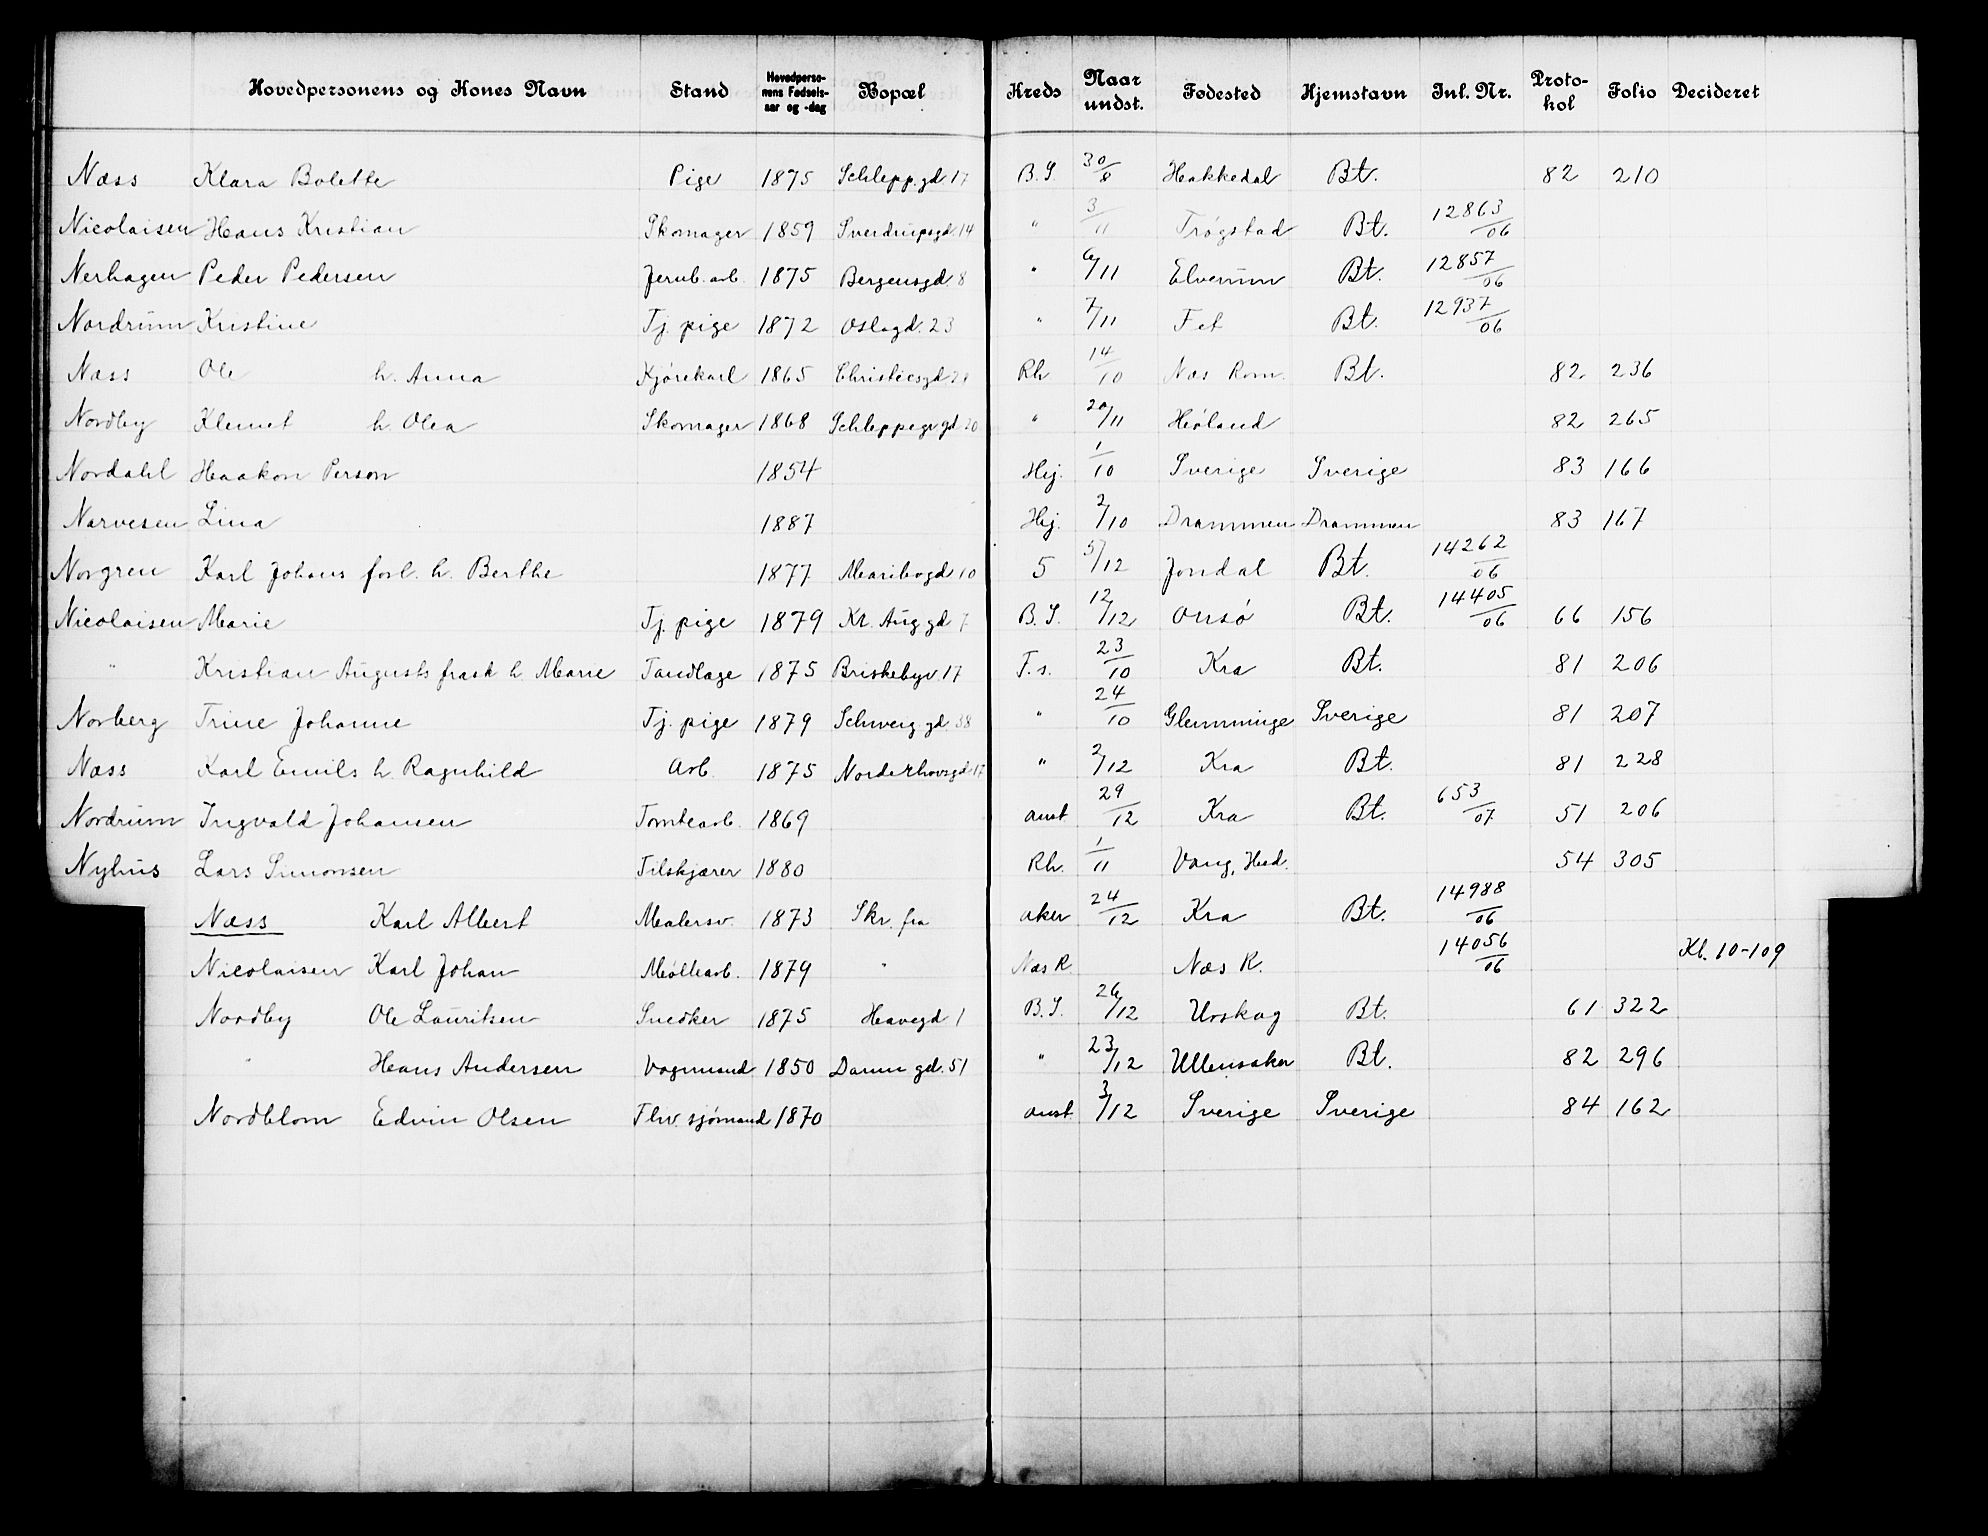 Hovedpersonens og Kones Navn Stand Hovedperso-nens Fødsels-aar og -dag Bopæl Kreds Naar undst. Fødested Hjemstavn Inl. Nr. Proto-kol Folio Decideret
Næss Klara Bolette Pige 1875 Schlepp.gd 17 B.S. 30/8 Hakkedal Bt. 82 210
Nicolaisen Hans Kristian Skomager 1859 Sverdrupsgd. 14 " 3/11 Trøgstad Bt. 12863/06
Nerhagen Peder Pedersen Jernb. arb. 1875 Bergensgd. 8 " 6/11 Elverum Bt. 12857/06
Nordrum Kristine Tj. pige 1872 Oslogd. 23 " 7/11 Fet Bt. 12937/06
Næss Ole h. Anna Kjørekarl 1865 Christiesgd 14/10 Rh Næs Rom. Bt. 82 236
Nordby Klemet h. Olea Skomager 1868 Schleppegr gd 20 " 20/11 Høland 82 265
Nordahl Haakon Person 1854 Hej. 1/10 Sverige Sverige 83 166
Narvesen Lina 1887 Hej. 2/10 Drammen Drammen 83 167
Norgren Karl Johans forl. h. Berthe 1877 Maribogd 10 5 5/12 Jondal Bt. 14262/06
Nicolaisen Marie Tj. pige 1879 Kr. Aug gd 7 B.S. 12/12 Onsø Bt. 14405/06 66 156
" Kristian Augusts frask h Marie Tandlæge 1875 Briskebyv. 17 F.s. 23/10 Kra Bt. 81 206
Norberg Trine Johanne Tj. pige 1879 Schweig.gd. 38 " 24/10 Glemminge Sverige 81 207
Næss Karl Emils h. Ragnhild Arb. 1875 Norderhovsgd. 17 " 2/12 Kra Bt. 81 228
Nordrum Ingvald Johansen Tomtearb. 1869 anst 29/12 Kra Bt. 653/07 51 206
Nyhus Lars Simonsen Tilskjærer 1880 Rh. 1/11 Vang, Hed. 54 305
Næss Karl Albert Malersv. 1873 Skr. fra Aker 24/12 Kra Bt. 14988/06
Nicolaisen Karl Johan Møllearb. 1879 " Næs R. Næs R. 14056/06 Kl. 10-109
Nordby Ole Lauritsen Snedker 1875 Havegd 1 B.S. 26/12 Urskog Bt. 61 322
" Hans Andersen Vognmand 1850 Damm gd. 51 " 23/12 Ullensaker Bt. 82 296
Nordblom Edvin Olsen Thv. sjømand 1870 anst 3/12 Sverige Sverige 84 162